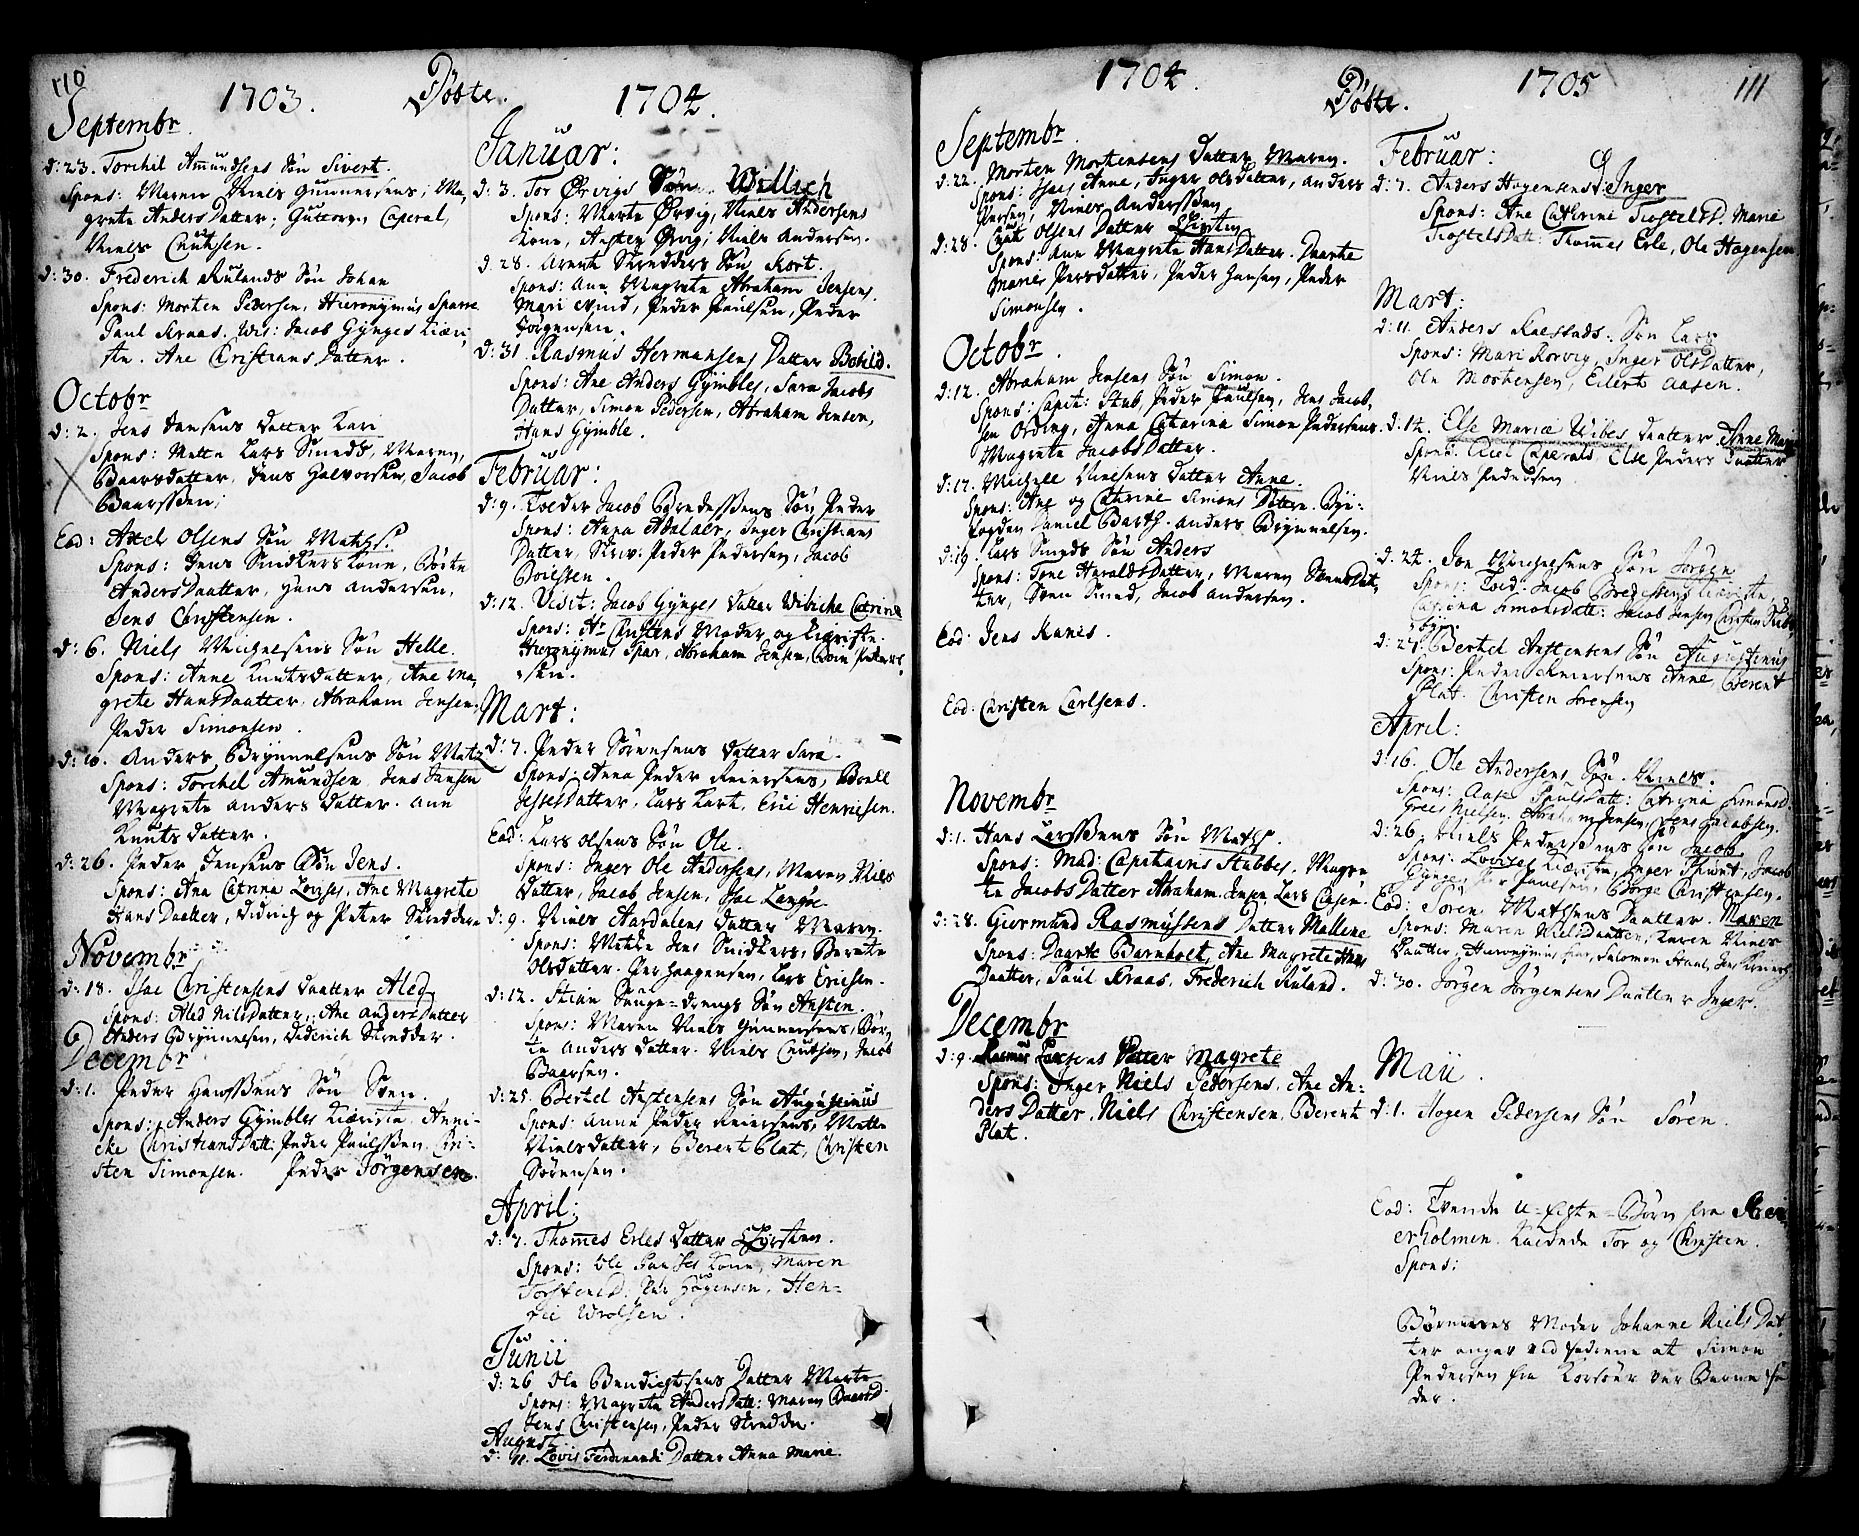 110
1703.
Döbte.
1704.
Septembr.
d: 23. Torchil Amundsens Sön Sivert.
Spons: Maren Niels Gunnersens; Ma-
grete Anders Datter; Guttorm Caperal,
Niels Cnutsen.
d: 30. Frederich Rulands Sön Johan
Spons: Morten Pedersen, Hieronymus Sparre
Paul Kraas. Vis: Jacob Gynges Kiæri-
ste. Ane Christians Datter.
Octobr
d: 2. Jens Jansens Datter Kari
Spons: Mette Lars Smeds, Maren
Baarsdatter, Jens Halvorsen, Jacob
Baarssen;
Eod: Axel Olsens Sön Mathis.
Spons: Jens Snidkers Kone, Börte
Anders Daatter, Hans Andersen,
Jens Christensen.
d: 6. Niels Michelsens Sön Helle.
Spons: Anne Knutsdatter, Ane Ma-
grete Hans Daatter, Abraham Jensen,
Peder Simonsen.
d: 10. Anders Brynnelsens Sön Matz
Spons: Torchel Amundsen, Jens Jansen
Magrete Anders Datter. Ane
Knuts datter.
d: 26. Peder Jensens Sön Jens.
Spons: Ane Catrina Lovises, Ane Magrete
Hans Daatter, Didrich og Peter Skreddere
Novembr
d: 18. Isac Christensens Daatter Aled
Spons: Aled Nils Datter, Ane Anders Datter
Anders Brynnelsen, Diderich Skredder.
Decembr
d: 1. Peder Hanssens Sön Sven.
Spons: Anders Gymbles Kiæriste, Anni-
che Christians Datt: Peder Paulssen, Chri-
sten Simonsen. Peder Jörgensen.
Januar:
d: 3. Tor Örvigs Sön Willich
Spons: Marte Örvig, Niels Andersens
Kone, Austen Örvig; Niels Andersen.
d: 28. Arent Skredders Sön Kort.
Spons: Ane Magrete Abraham Jensens,
Mari Wind, Peder Paulsen, Peder
Jörgensen.
d: 31. Rasmus Hermansens Datter Bohild.
Spons: Ane Anders Gymbles, Sara Jacobs
Datter, Simon Pedersen, Abraham Jensen,
Hans Gymble.
Februar:
d: 9. Toeder Jacob Bredessens Sön Peder
Spons: Anna Adelaer, Inger Christians
Datter, Skriv: Peder Pedersen, Jacob
Boiessen.
d: 12. Visit: Jacob Gynges Datter Wibiche Catrine
Spons: Hr Christens Moder og Kiæriste.
Hieronymus Spar, Abraham Jensen, Boie Peders-
sen.
Mart:
d: 7. Peder Sörensens datter Sara.
Spons: Anna Peder Reiersens, Boell
Jessesdatter, Lars Kart, Eric Henricsen.
Eod: Lars Olsens Sön Ole.
Spons: Inger Ole Andersens, Maren Niels
Datter, Jacob Jensen, Isac Lange
d: 9. Niels Aardalens datter Maren.
Spons: Mette Jens Snidkers, Berete
Olsdatter. Per Haagensen, Lars Ericsen.
d: 12. Stian Sauge-drengs Sön Austen.
Spons: Maren Niels Gunnersens, Bör-
te Anders datter. Niels Cnutsen, Jacob
Baarsen.
d: 25. Bertel Austensens Sön Augustinus
Spons: Anne Peder Reiersens, Mette
Nielsdatter, Berent Plat, Christen
Sörensen.
April:
d: 7. Thomes Erles datter Kirsten.
Spons: Ole Hanses Kone, Maren
Torstens D: Peder Hagensen, Hen-
ric Wrolsen.
Junii
d: 26 Ole Bendichtsens Datter Marte
Spons: Magrete Anders Datt: Maren Baars D.
Jens Christensen, Peder Skredder.
August
d: 11. Lovis Ferdinandi Datter Anna Marie.
1704.
Döbte.
1705
111
Septembr
d: 22. Morten Mortensens Datter Maren.
Spons: Isacs Anne, Inger Olsdatter, Anders
Persen, Niels Anderssen
d: 28. Cnut Olsens Datter Kirsten
Spons: Ane Magrete Hans Datter. Daarte
Marie Persdatter, Peder Jansen, Peder
Simonsen.
Octobr.
d: 12. Abraham Jensens Sön Simon.
Spons: Capit: Stub, Peder Paulsen, Jens Jacob-
sen Ording, Anna Catarina Simon Pedersens
Magrete Jacobs Datter.
d: 17. Michell Nielsens datter Anne.
Spons: Ane og Catrine Simons Døttre. Bye-
fogden Daniel Barth. Anders Brynnelsen.
d: 19. Lars Smeds Sön Anders
Spons: Tone Haralds Datter, Maren Svens Dat-
ter, Sven Smed, Jacob Andersen.
Eod: Jens Kanes.
Eod: Christen Carlsens.
Novembr
d: 1. Hans Larssens Sön Maths.
Spons: Mad: Capitains Stubbes. Magre-
te Jacobs Datter Abraham Jensen Lars
d: 28. Giermund Rasmussens Datter Mallene
Spons: Daarte Barnholt, Ane Magrete Hans
Daatter, Paul Kraas, Frederich Ruland.
Decembr
d: 9. Rasmus Larsens Datter Magrete
Spons: Inger Niels Pedersens, Ane An-
ders Datter, Niels Christensen, Berent
Plat.
Februar:
d: 7. Anders Hagensens D: Inger
Spons: Ane Cathrine Tiostels D: Marie
Tiostels Datt: Thomes Erle, Ole Hagensen
Mart:
d: 11. Anders Raestads Sön Lars
Spons: Mari Rorvig, Inger Ols Datter,
Ole Mortensen, Eilert Aasen.
d: 14. Else Mariæ Wibes Daatter Anne Marie
Spons: Axel Caperals, Else Peders Daatter
Niels Pedersen
d: 24. Jon Michelsens Sön Jörgen
Spons: Toed: Jacob Bredessens Kiæriste,
Catrina Simonsdatt: Jacob Jensen Christen
d: 27. Bertel Austensens Sön Augustinus
Spons: Peder Reiersens Anne, Berent
Plat. Christen Sörensen
April:
d: 16. Ole Andersens Sön Niels.
Spons: Aase Pauls Datt: Catrina Simons D.
Grees Nielsen, Abraham Jensen, Jens Jacobsen.
d: 26. Niels Pedersens Sön Jacob
Spons: Lovises Kiæriste, Inger Thurt, Jacob
Gynge, Per Povelsen, Börge Christensen.
Eod: Sören Mathsens Daatter Maren
Spons: Maren Niels Daatter, Karen Niels
Daatter, Hieronymus Spar, Salomon
d: 30. Jörgen Jörgensens Daatter Inger.
Maii.
d: 1. Hogen Pedersens Sön Sören.
Eod: Tvende U-Egte-Börn fra
erholmen. Kaldede Tor og Christen.
Spons:
Börnenes Moder Johanne Niels Dat-
ter angav ved Ederne at Simon
Pedersen fra Korsöer var Barne Fa-
der.